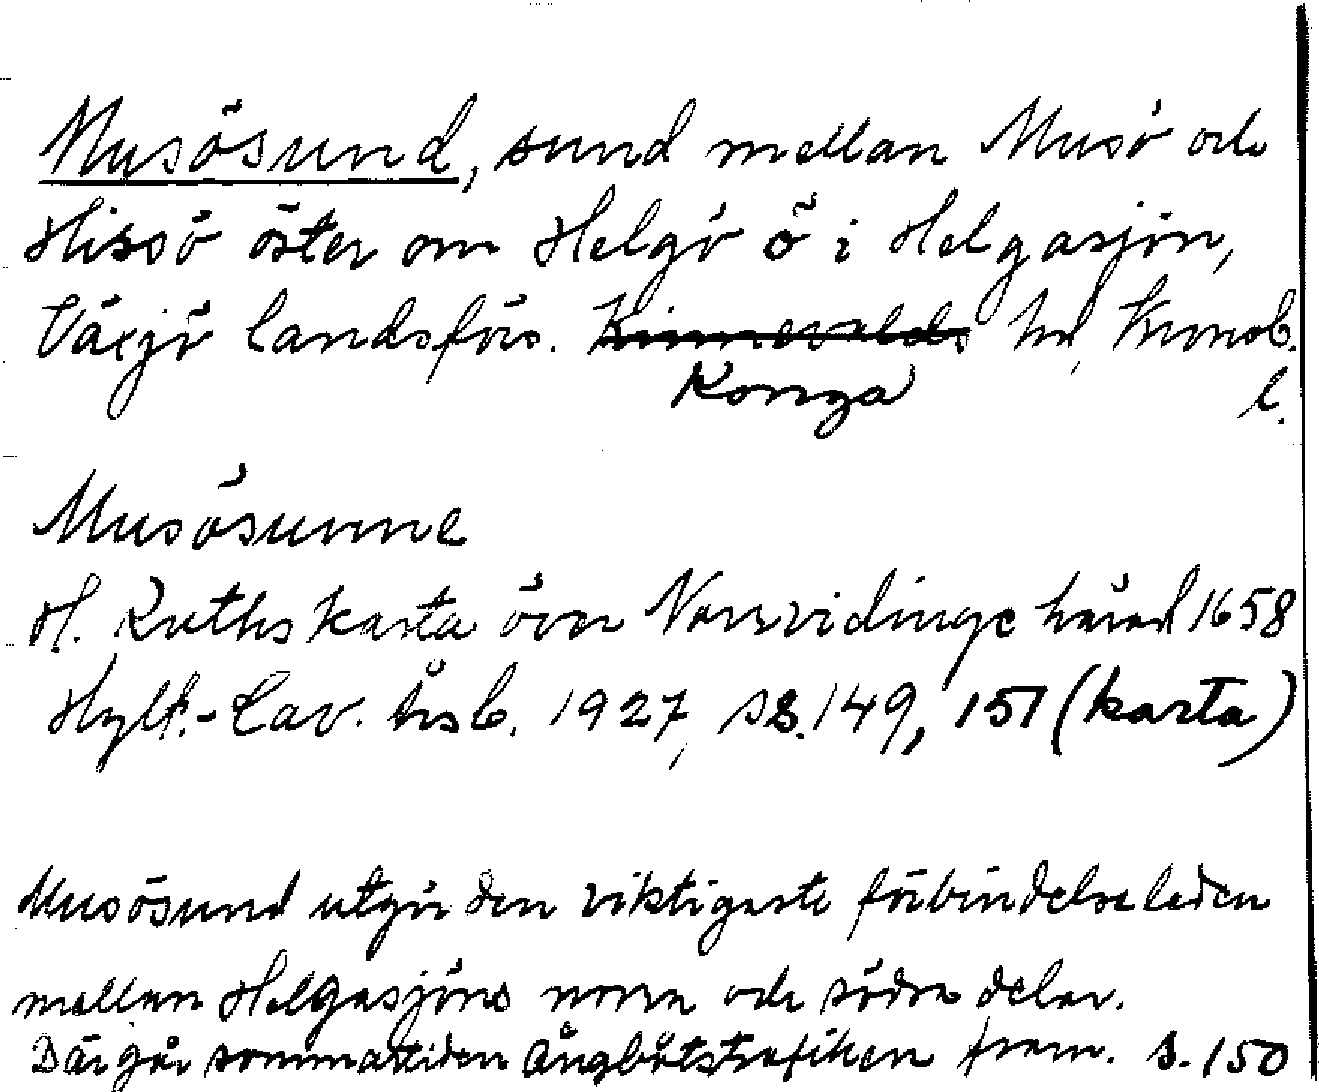 Musösund, sund mellan Musö och
Hissö öster om Helgö ö i Helgasjön,
Växjö landsförs. Kinnevalds hd, Kronob.
Konga l.
Musösunne
H. Ruths karta över Norrvidinge härad 1658
Hylt.-Cav. årsb. 1927, ss. 149, 151 (karta)
Musösund utgör den viktigaste förbindelseleden
mellan Helgasjöns norra och södra delar.
Där går sommartiden ångbåtstrafiken fram. s. 150